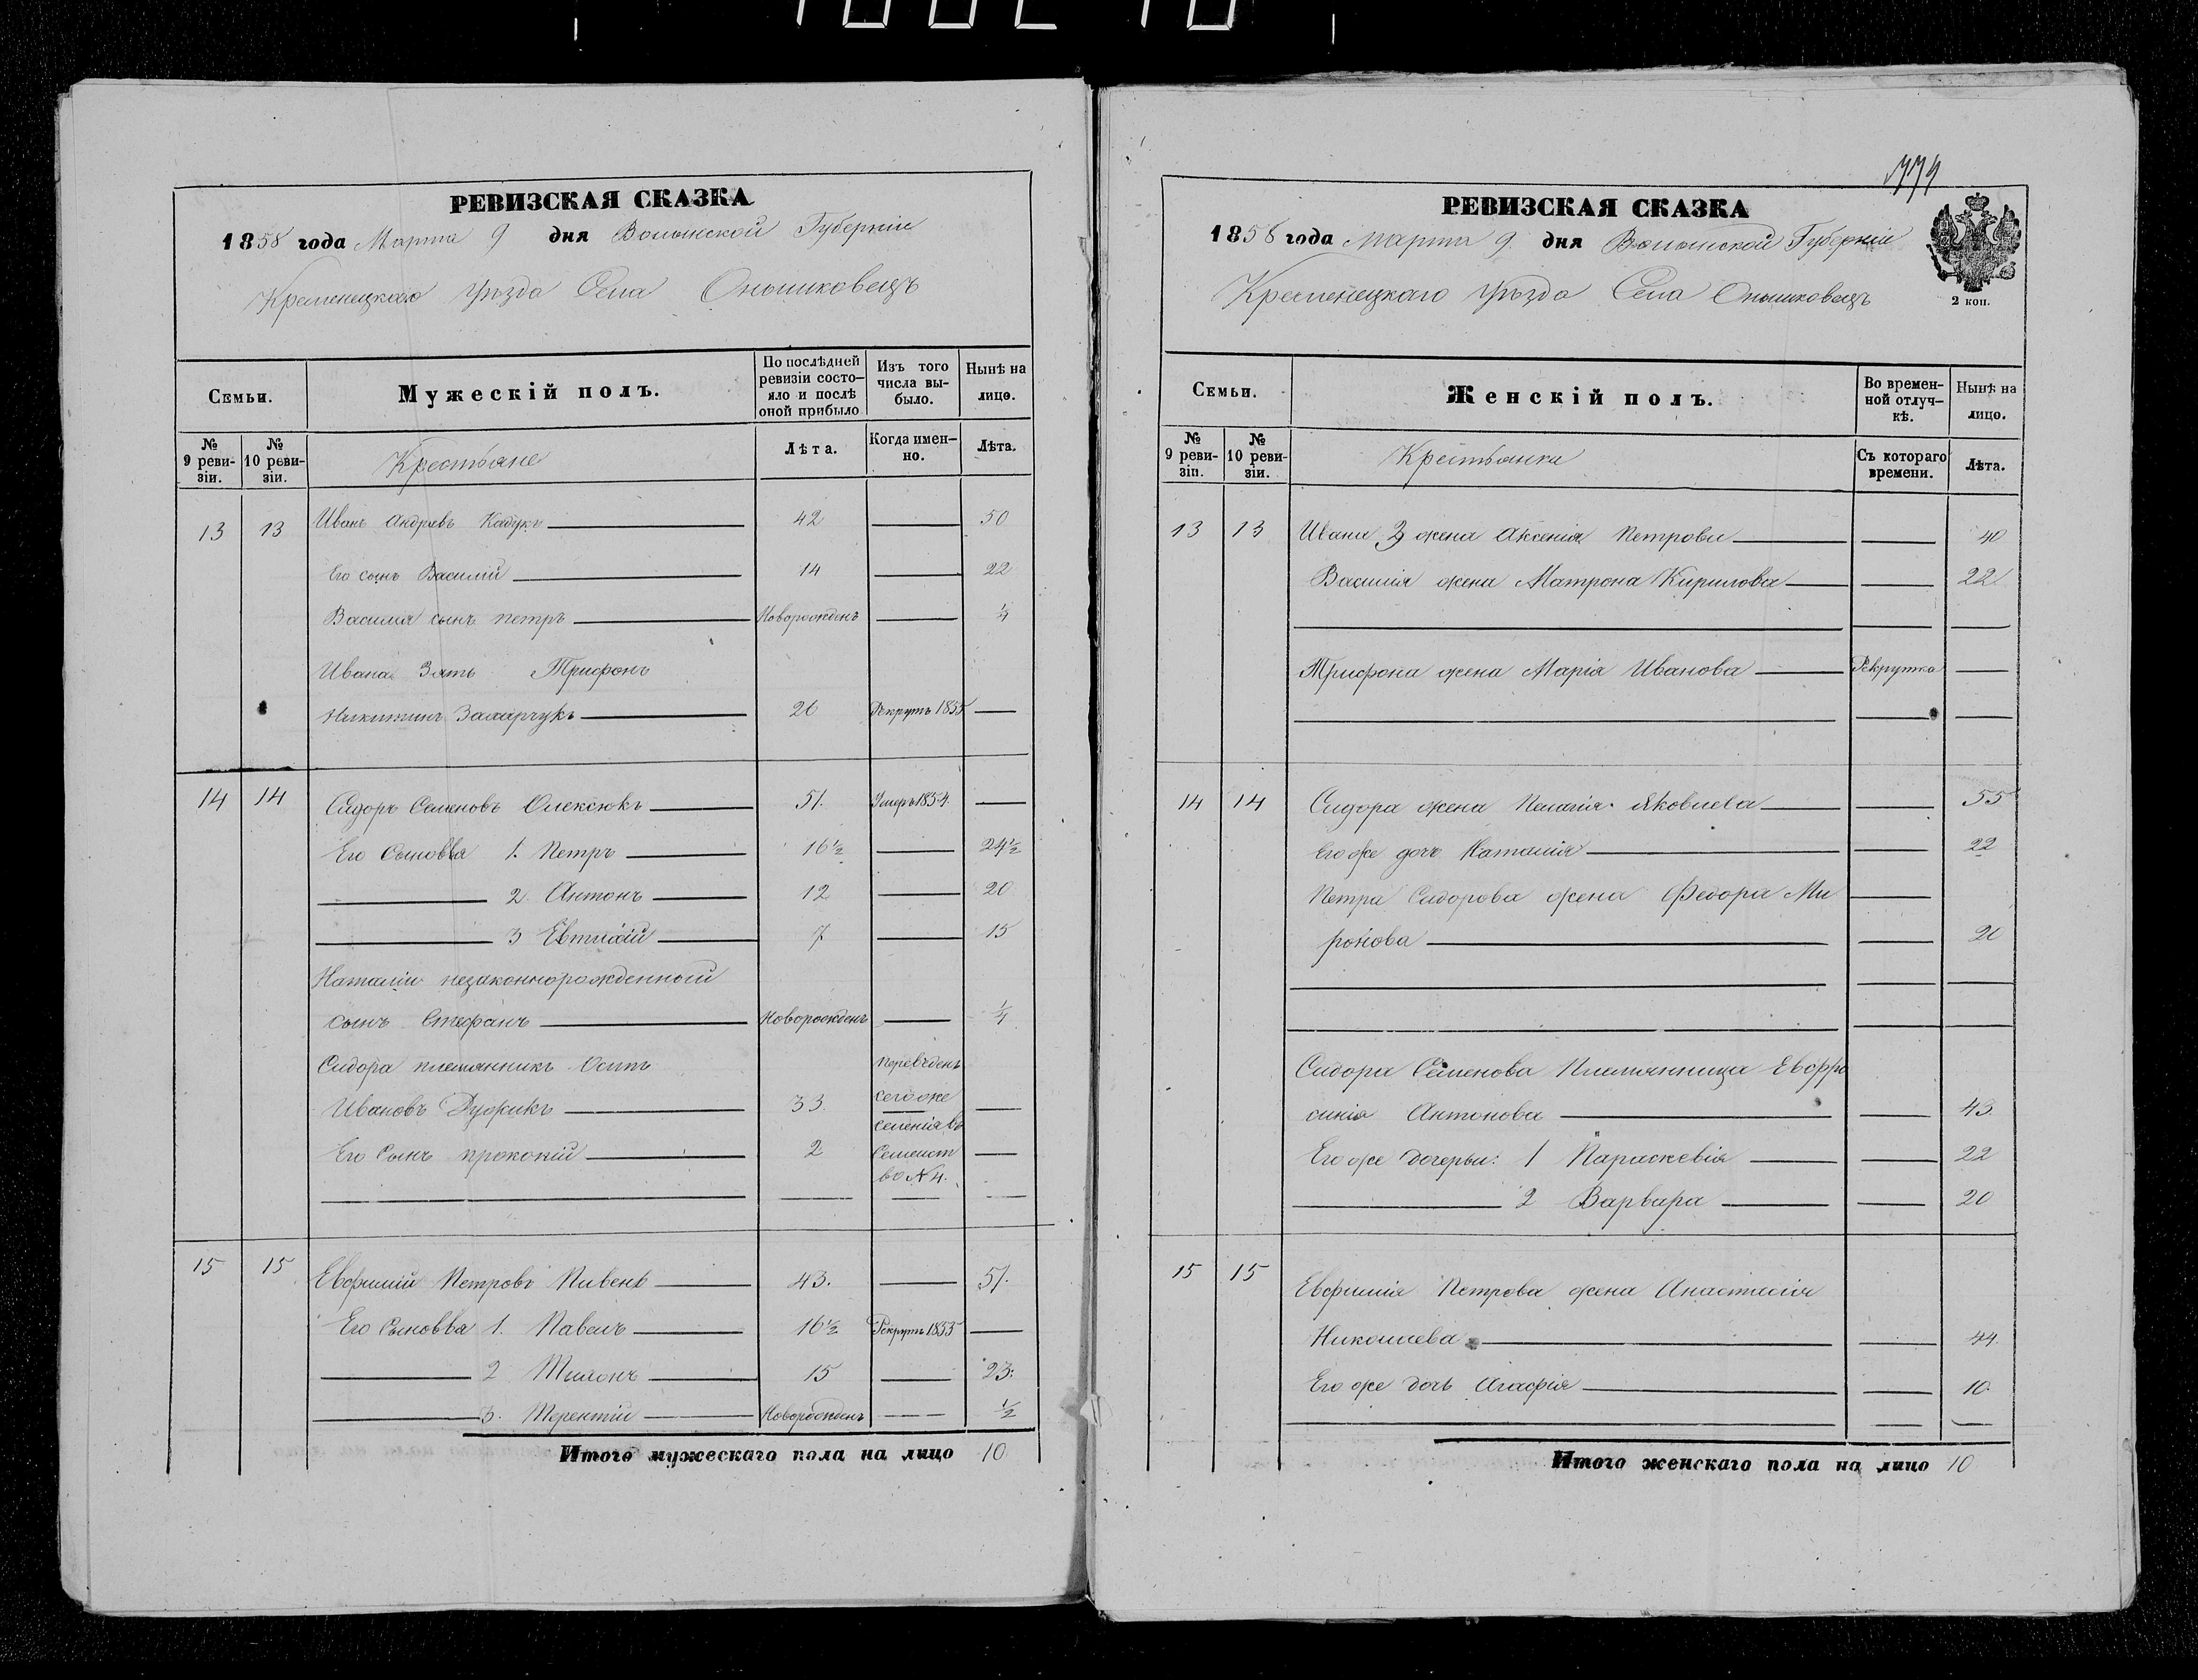 РЕВИЗСКАЯ СКАЗКА
1858 года Марта 9 дня Волынской Губерніи
Кременецкаго Уѣзда Села Онышковецъ
Семьи.
Мужескій полъ.
По послѣдней ревизіи состо-
яло и послѣ оной прибыло
Изъ того числа вы-
было.
Нынѣ на лицо.
№ 9 реви-
зіи.
№ 10 реви-
зіи.
Крестьяне
Лѣта.
Когда имен-
но.
Лѣта.
13 13 Иванъ Андреевъ 42 50
Его сынъ Василій 14 22
Василія сынъ Петръ Новорожденъ 1/4
Ивана Зять Трифонъ
Никитинъ Захарчукъ 26 Рекрутъ 1855
14 14 Сидоръ Семеновъ Олексюкъ 51. Умеръ 1854.
Его Сыновья 1. Петръ 16 1/2 24 1/2
2. Антонъ 12 20
3 Евтихій 7 15
Наталіи незаконнорожденный
сынъ Стефанъ Новорожденъ 1/4
Сидора племянникъ Осипъ переведенъ
Ивановъ 33 сегоже
селенія въ
Его Сынъ Прокопій 2 Семейст
во № 4.
15 15 Евфимій Петровъ Пивень 43. 51.
Его Сыновья 1. Павелъ 16 1/2 Рекрутъ 1855
2 15 23.
3. Терентій Новорожденъ 1/2
Итого мужескаго пола на лицо 10
РЕВИЗСКАЯ СКАЗКА
1858 года Марта 9. дня Волынской Губерніи
Кременецкаго Уѣзда Села Онышковецъ
2 коп.
Семьи.
Женскій полъ.
Во времен-
ной отлуч-
кѣ.
Нынѣ на лицо.
№ 9 реви-
зіи.
№ 10 реви-
зіи.
Крестьянки
Съ котораго времени.
Лѣта.
13 13 Ивана 2 жена Аксенія Петрова 40
Василія жена Матрона Кирилова 22
Трифона жена Марія Иванова Рекрутка
14 14 Сидора жена Пелагія Яковлева 55
Его же дочь Наталія 22
Петра Сидорова жена Федора Ми
ронова
Сидора Семенова Племянница Евфро
синія Антонова 43
Его же дочерьи: 1 Параскевія 22
2 Варвара 20
15 15
Евфимія Петрова жена Анастасія
Николаева 44.
Его же дочь Агафія 10.
Итого женскаго пола на лицо 10